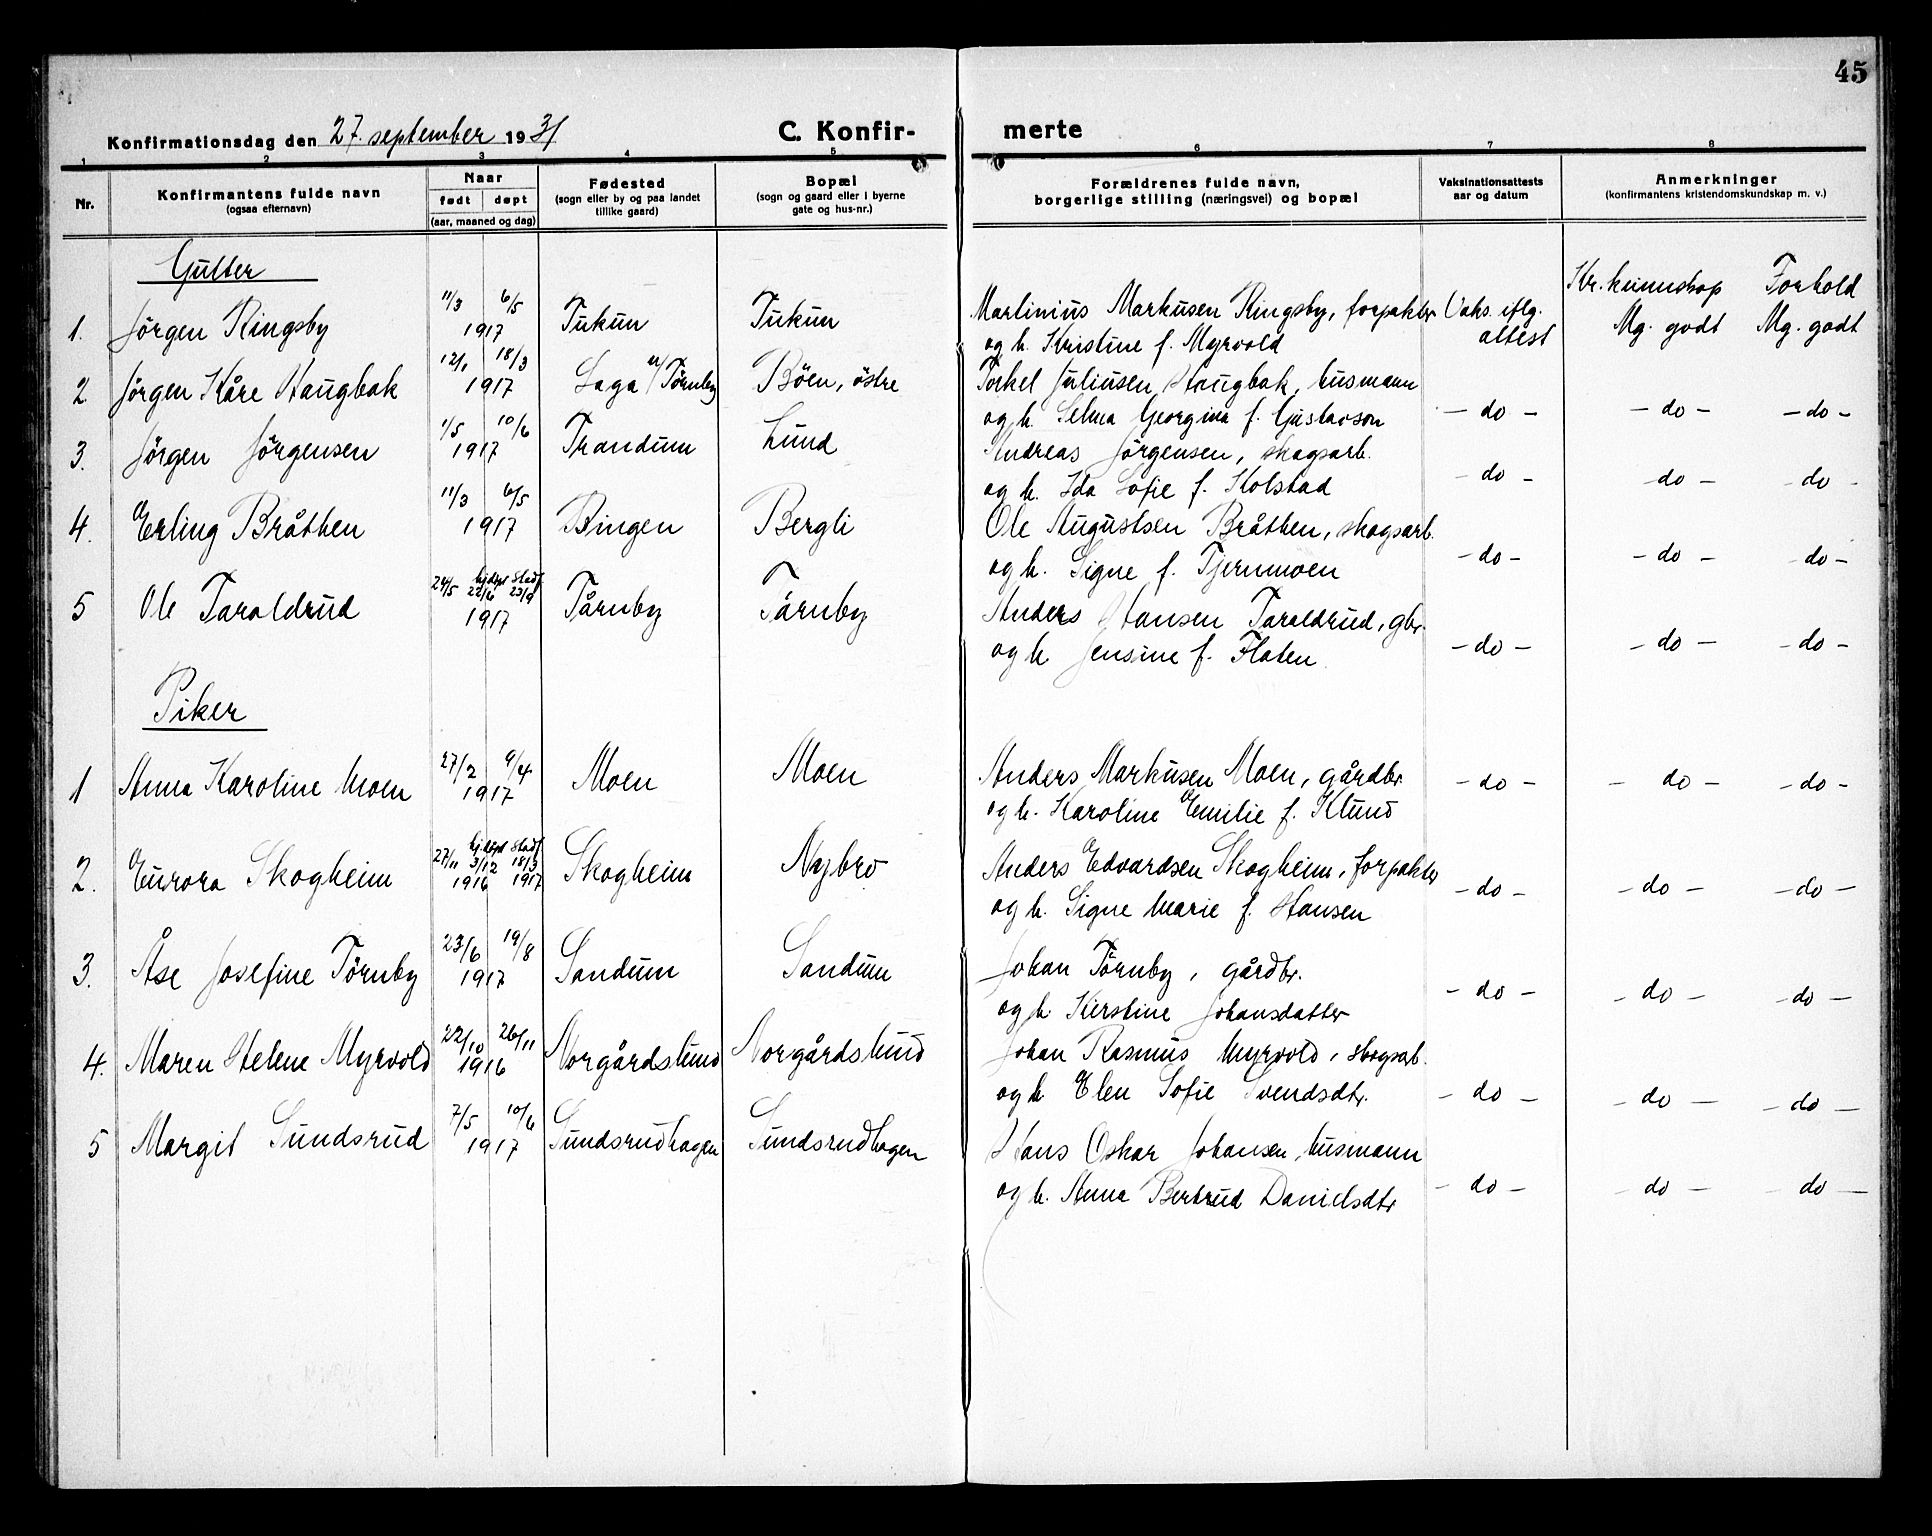 45
Konfirmationsdag den 27. september 1931
C. Konfir- merte
1 2 3 4 5 6 7 8
Nr. Konfirmantens fulde navn (ogsaa efternavn)
Naar
født døpt
(aar, maaned og dag)
Fødested
(sogn eller by og paa landet
tillike gaard)
Bopæl
(sogn og gaard eller i byerne
gate og hus-nr.)
Forældrenes fulde navn,
borgerlige stilling (næringsvei) og bopæl
Vaksinationsattests
aar og datum
Anmerkninger
(konfirmantens kristendomskundskap m. v.)
Gutter
Kr. kunnskap Forhold
1. Jörgen Ringsby 11/3 6/5 1917 Tukun Tukun Martinius Markusen Ringsby, forpakter Vaks. iflg. Mg. godt Mg. godt
og h. Kristine f. Myrvold attest
2 Jörgen Kåre Haugbak 12/1 18/3 1917 Laga u/ Törnby Böen, östre Torkel Juliusen Haugbak, husmann
og h. Selma Georgina f. Gustavson - do - - do - - do -
3. Jörgen Jörgensen 1/5 10/6 1917 Trandum Lund Andreas Jörgensen, skogsarb.
og h. Ida Sofie f. Kolstad - do - - do - - do -
4. Erling Bråthen 11/3 6/5 1917 Bingen Bergli Ole Augustsen Bråthen, skogsarb.
og h. Signe f. Tjernmoen - do - - do - - do -
5 Ole Taraldrud 24/5 hj.døpt 22/6 Stadf. 23/9 1917 Tårnby Tårnby Anders Hansen Taraldrud, gbr.
og h. Jensine f. Flaten - do - - do - - do -
Piker
1 Anna Karoline Moen 27/2 9/4 1917 Moen Moen Anders Markusen Moen, gårdbr. - do - - do - - do -
og h. Karoline Emilie f. Klund
2. Eurora Skogheim 27/11 hj.døpt 3/12 Stadf. 18/3 1916 1917 Skogheim Nybro Anders Edvardsen Skogheim, forpakter
og h. Signe Marie f. Hansen - do - - do - - do -
3. Åse Josefine Törnby 23/6 19/8 1917 Sandum Sandum Johan Törnby, gårdbr.
og h. Kirstine Johansdatter - do - - do - - do -
4. Maren Helene Myrvold 22/10 26/11 1916 Norgårdslund Norgårdslund Johan Rasmus Myrvold, skogsarb.
og h. Elen Sofie Svendsdtr. - do - - do - - do -
5 Margit Sundsrud 7/5 10/6 1917 Sundsrudhagen Sundsrudhagen Hans Oskar Johansen, husmann
og h. Anna Bertrud Danielsdtr - do - - do - - do -